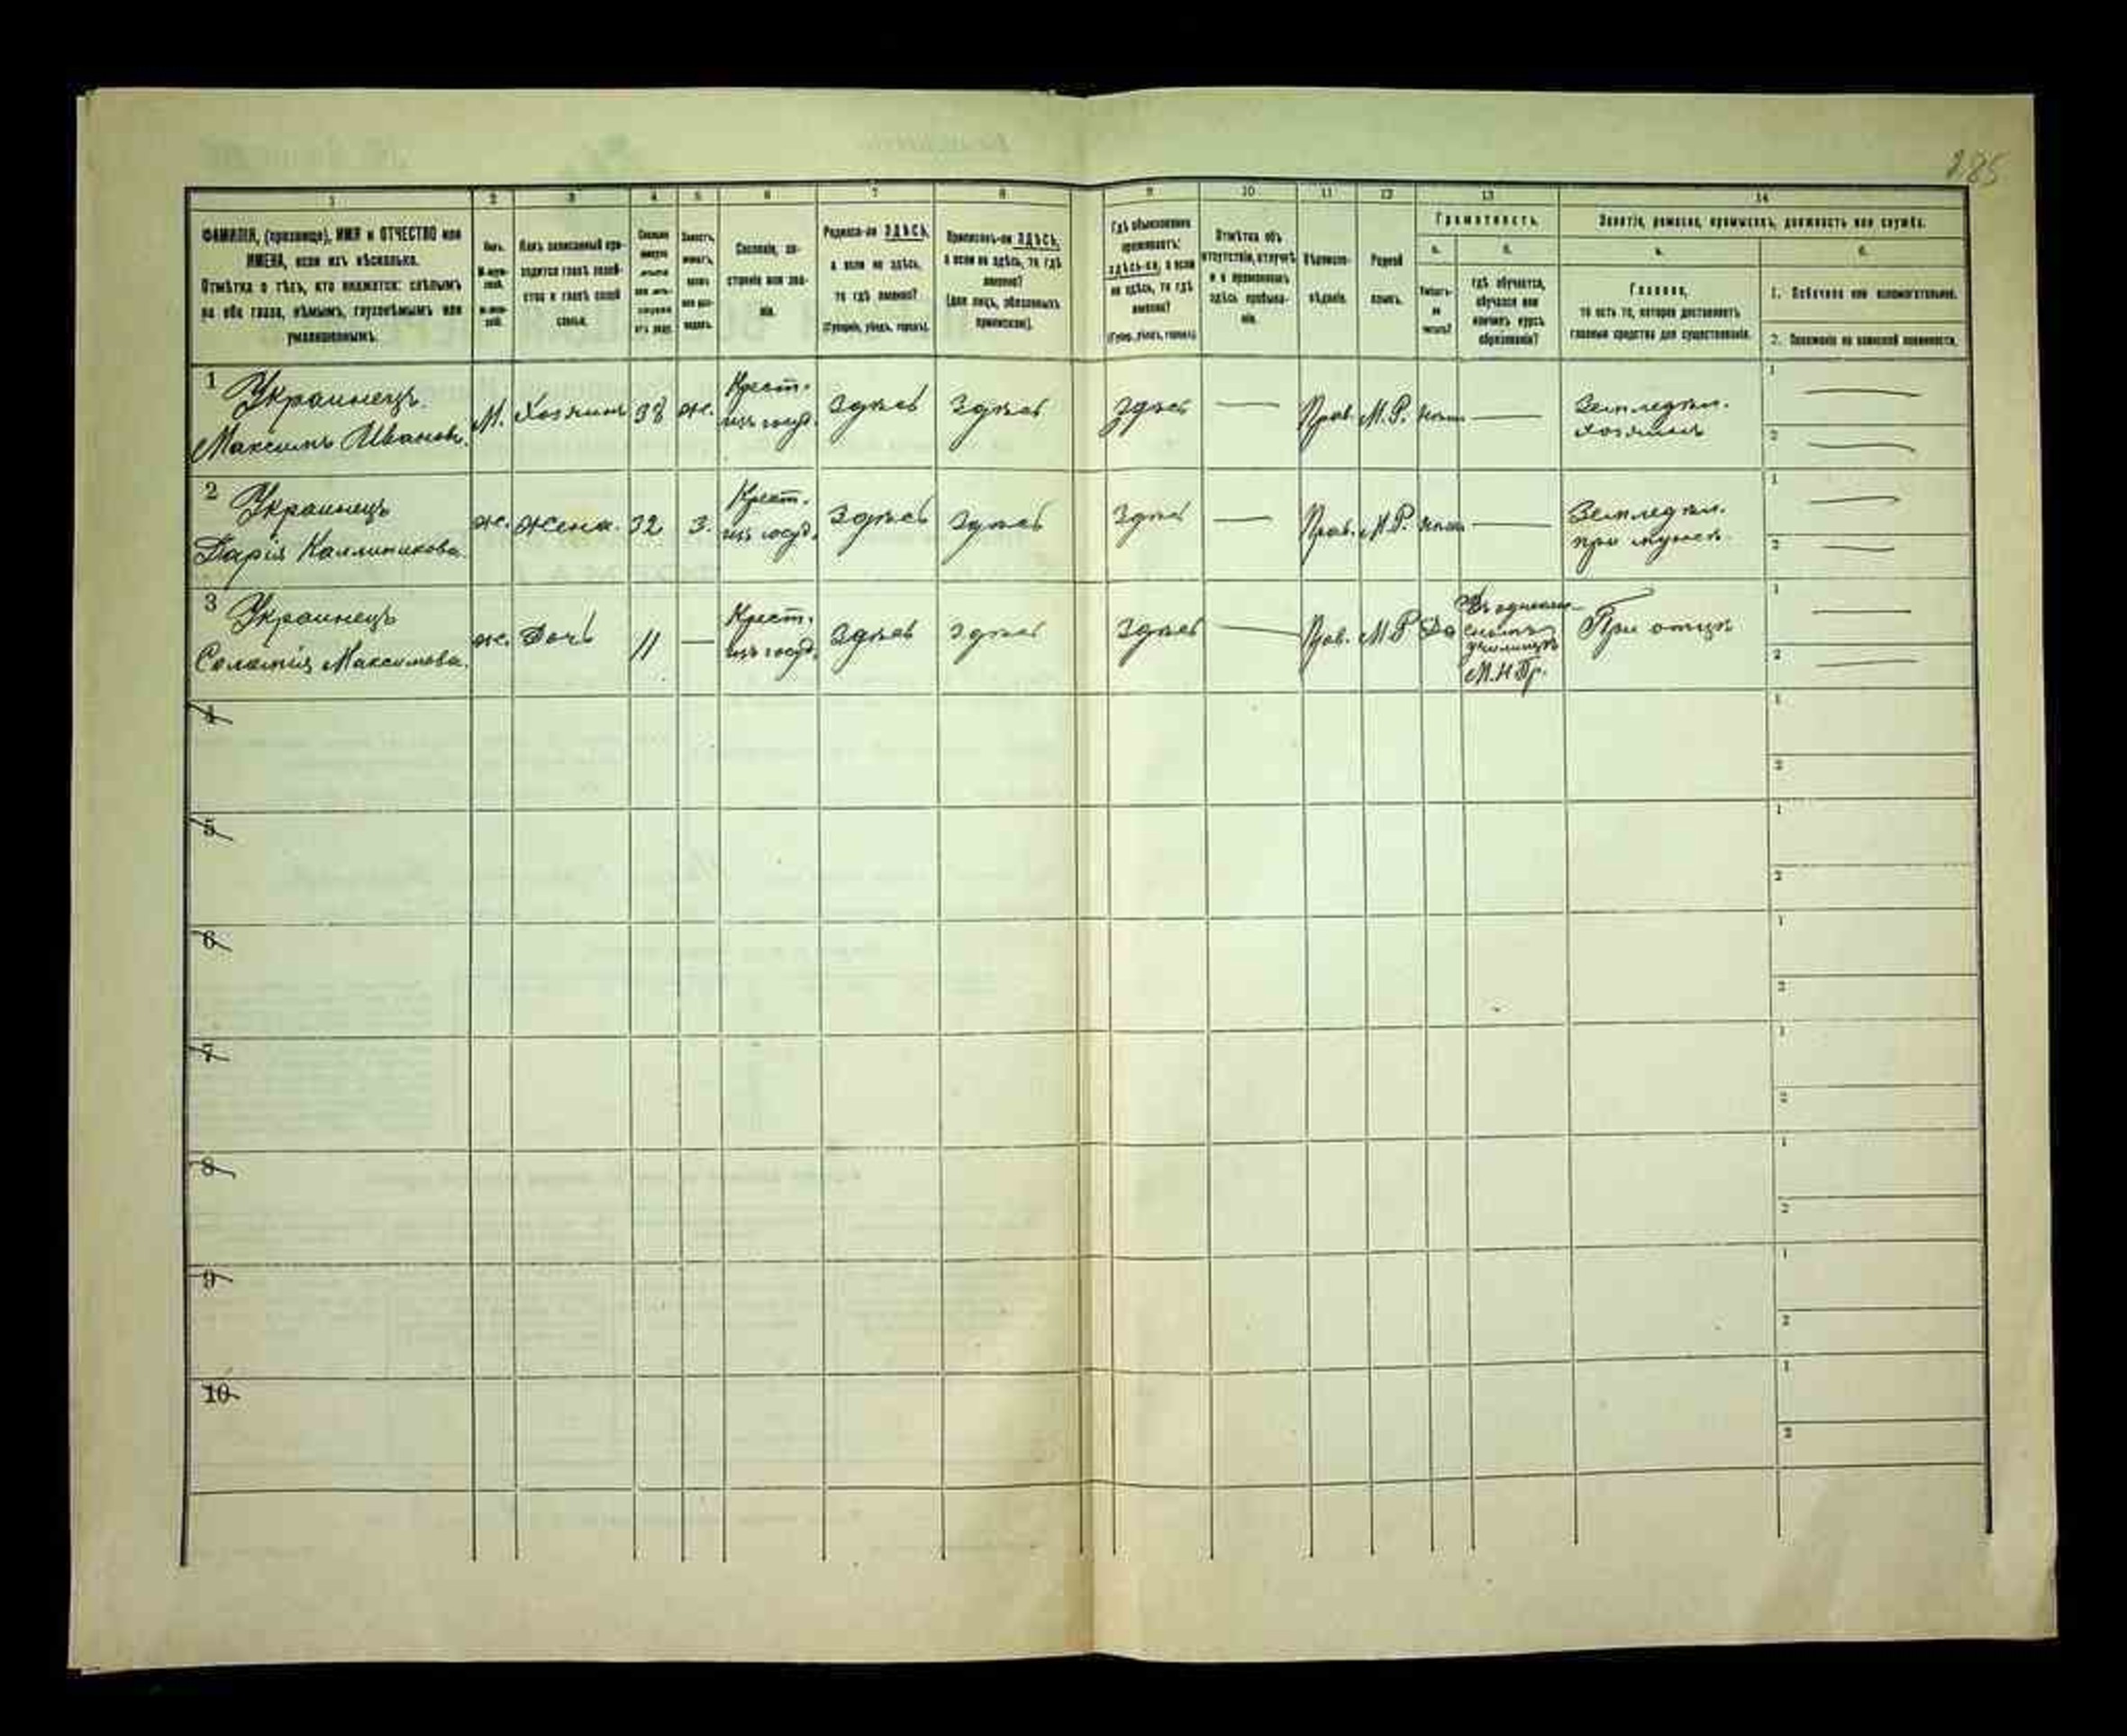 285
1 2 3 4 5 6 7 8 9 10 11 12 13 14
ФАМИЛІЯ, (прозвище), ИМЯ и ОТЧЕСТВО или
ИМЕНА, если ихъ нѣсколько.
Отмѣтка о тѣхъ, кто окажется: слѣпымъ
на оба глаза, нѣмымъ, глухонѣмымъ или
умалишеннымъ.
Полъ.
Какъ записанный при-
ходится главѣ хозяй-
ства и главѣ своей
семьи.
Сословіе, со-
стояніе или зва-
ніе.
Родился-ли ЗДѢСЬ,
а если не здѣсь,
то гдѣ именно?
(Губернія, уѣздъ, городъ).
Приписанъ-ли ЗДѢСЬ,
а если не здѣсь, то гдѣ
именно?
(для лицъ, обязанныхъ
припиской).
Гдѣ обыкновенно
проживаетъ:
здѣсь-ли, а если
не здѣсь, то гдѣ
именно?
(Губер., уѣздъ, городъ).
Отмѣтка объ
отсутствіи, отлучкѣ
и о временномъ
здѣсь пребыва-
ніи.
Вѣроиспо-
вѣданіе.
Родной
языкъ.
Грамотность.
а. б.
Умѣетъ-
ли
читать?
гдѣ обучается,
обучался или
кончилъ курсъ
образованія?
Занятіе, ремесло, промыселъ, должность или служба.
а. б.
Главное,
то есть то, которое доставляетъ
главныя средства для существованія.
1. Побочное или вспомогательное.
2. Положеніе по воинской повинности.
1 Украинецъ
Максимъ Иванов.
М. Хозяинъ 38 ж.
Крест.
изъ госуд.
Здѣсь Здѣсь Здѣсь — Прав. М.Р. —
Земледѣл.
хозяинъ
1 —
2 —
2 Украинецъ
Дарія Каллиникова
ж. жена. 32 З.
Крест.
изъ госуд.
Здѣсь Здѣсь Здѣсь — Прав. М.Р. —
Земледѣл.
при мужѣ
1 —
2 —
3 Украинецъ
Соломія Максимова.
ж. Дочь 11 —
Крест.
изъ госуд.
Здѣсь Здѣсь Здѣсь — Прав. М.Р Да
училищѣ
М.Н.Пр.
При отцѣ
1 —
2 —
4 1
2
5 1
2
6 1
2
7 1
2
8 1
2
9 1
2
10 1
2